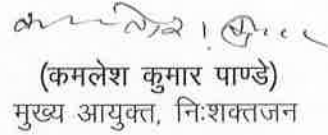 (कमलेश कुमार पाण्डे)
मुख्य आयुक्त, निःशक्तजन